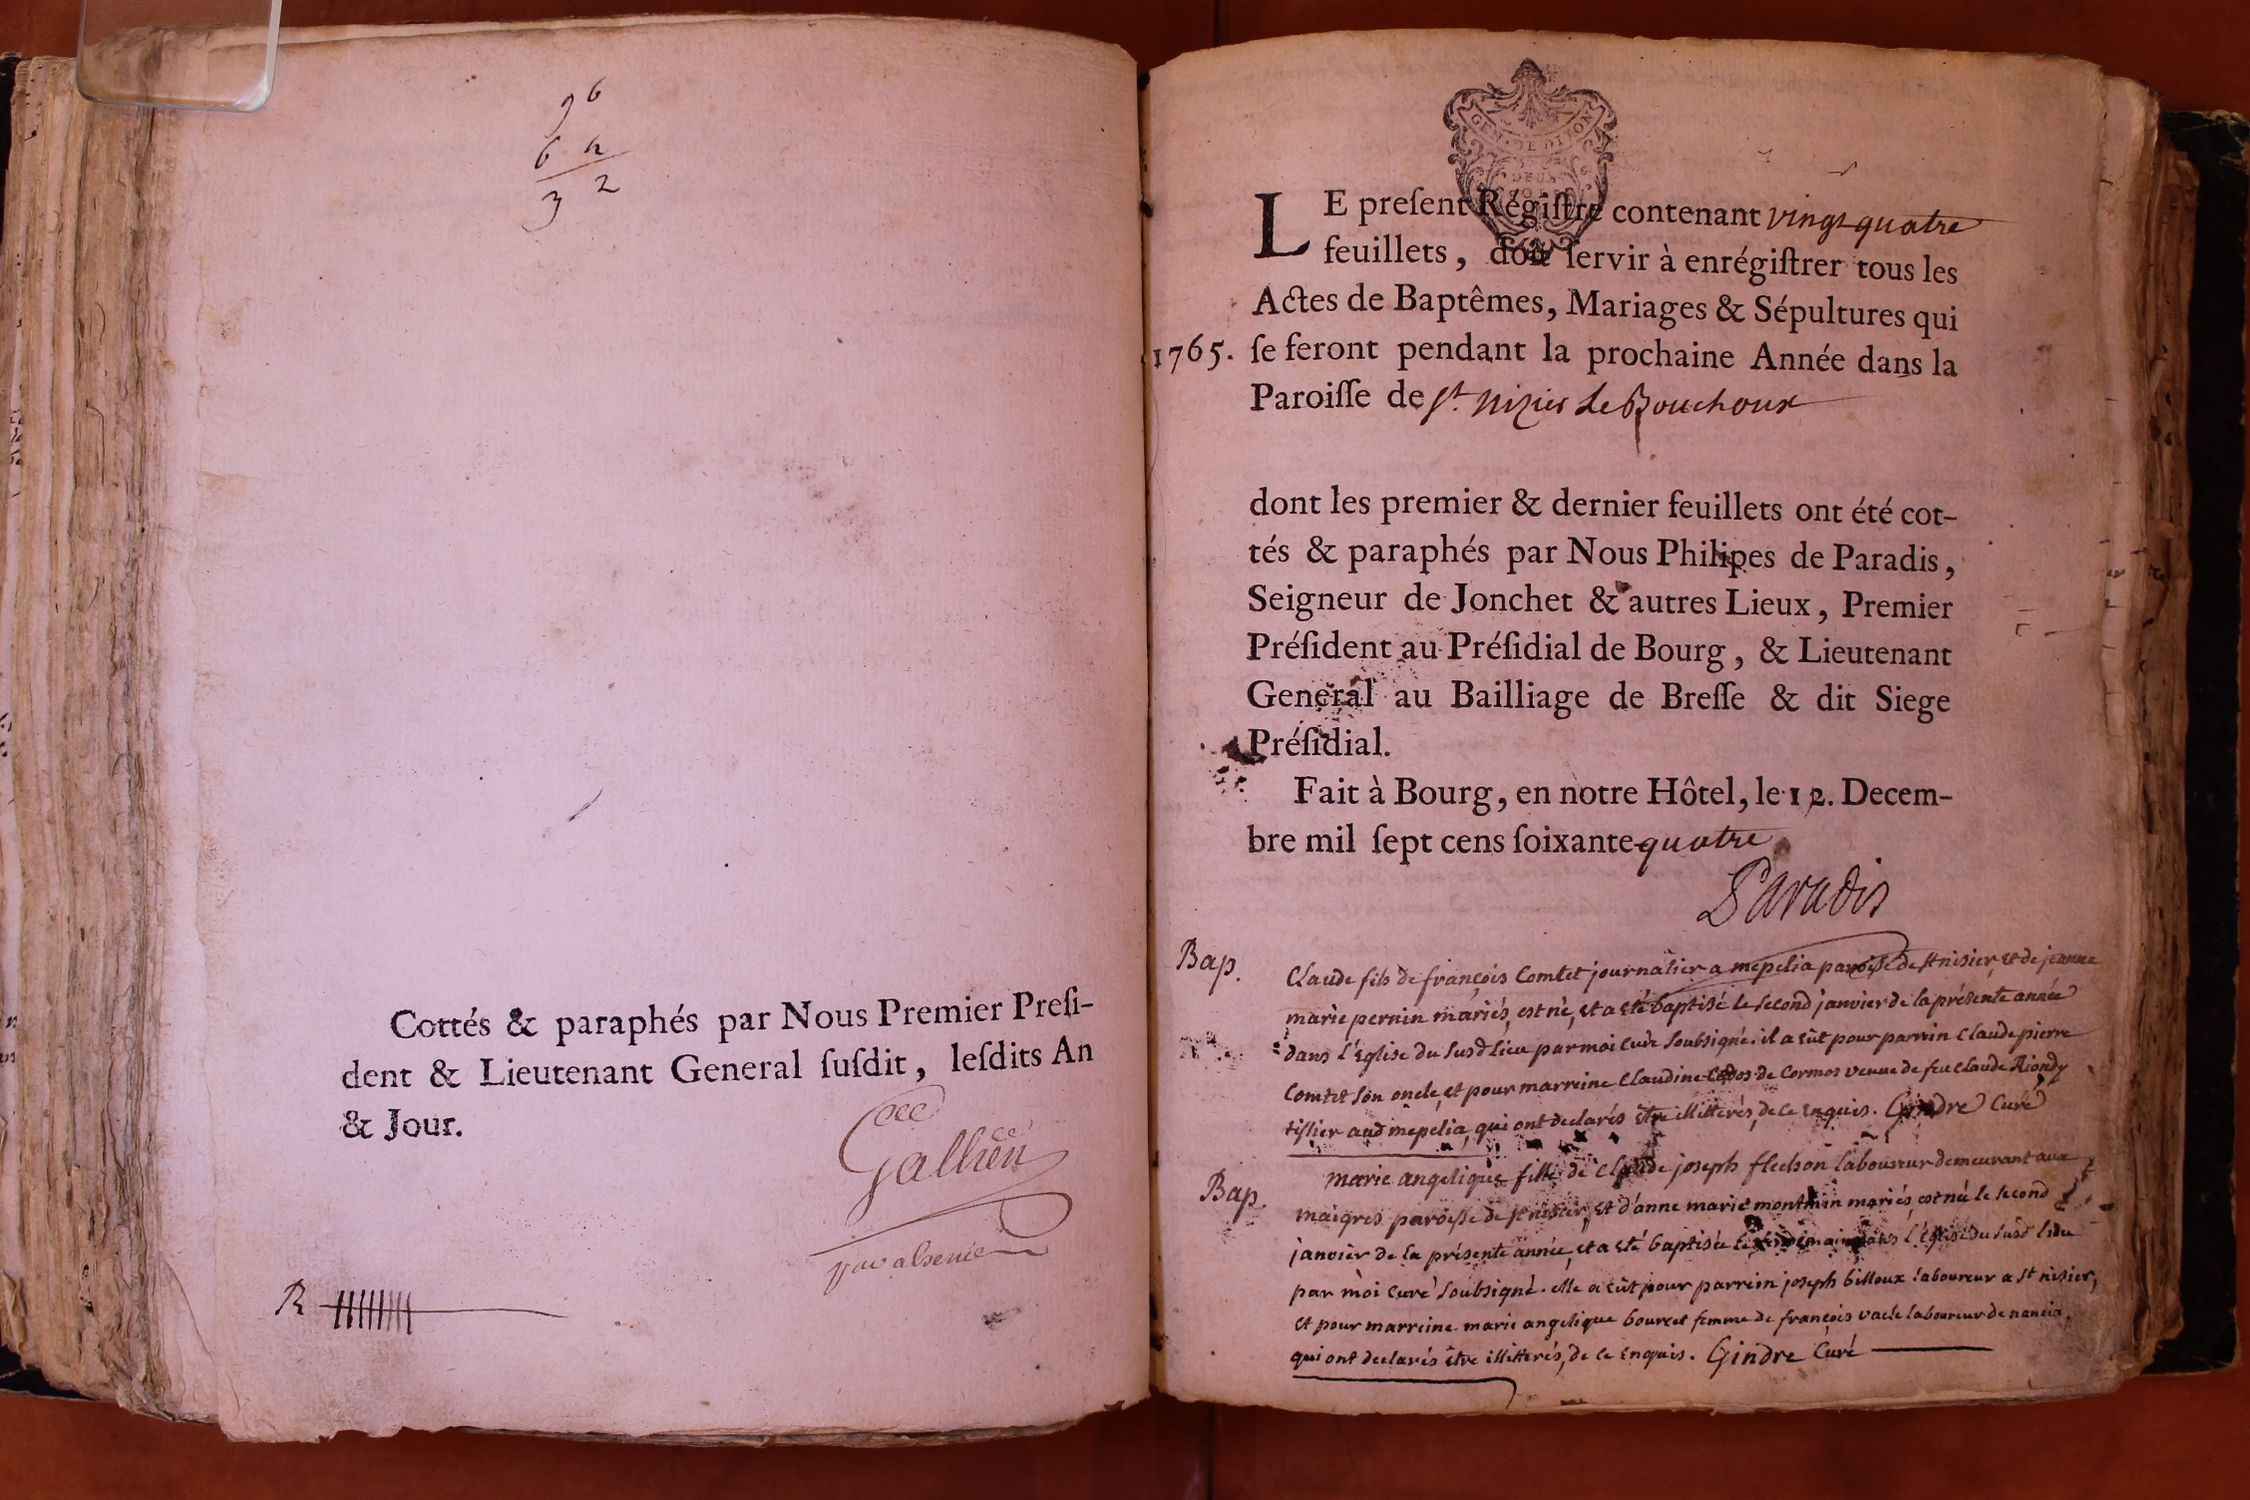 96
64
32
Cottés & paraphés par Nous Premier Presi-
dent & Lieutenant General susdit, lesdits An
& Jour.
Gallien
R
GEN. DE DIJON
DEUX
LE present Régistre contenant vingt quatre
feuillets, doit servir à enrégistrer tous les
Actes de Baptêmes, Mariages & Sépultures qui
1765. se feront pendant la prochaine Année dans la
Paroisse de st. nizier le Bouchoux
dont les premier & dernier feuillets ont été cot-
tés & paraphés par Nous Philipes de Paradis,
Seigneur de Jonchet & autres Lieux, Premier
Président au Présidial de Bourg, & Lieutenant
General au Bailliage de Bresse & dit Siege
Présidial.
Fait à Bourg, en notre Hôtel, le 12. Decem-
bre mil sept cens soixante quatre
Paradis
Bap. Claude fils de françois Comtet journalier a mepelia paroisse de st nisier, et de jeanne
marie pernin mariés, est né, et a eté baptisé le second janvier de la présente année
dans l'église du susd lieu par moi curé soubsigné. il a eût pour parrein Claude pierre
Comtet son oncle, et pour marreine Claudine de Cormos veuve de feu Claude Riondy
tissier aud mepelia, qui ont declarés être illitterés, de ce enquis. Gindre Curé
Bap. marie angelique fille de Claude joseph flechon laboureur demeurant aux
maigres paroisse de st nisier, et d'anne marie montmin mariés, est née le second
janvier de la présente année, et a eté baptisée le dans l'église du susd lieu
par moi curé soubsigné. elle a eût pour parrein joseph billoux laboureur a st nisier,
et pour marreine marie angelique bourcet femme de françois vacle laboureur de nancia,
qui ont declarés être illitterés, de ce enquis. Gindre Curé